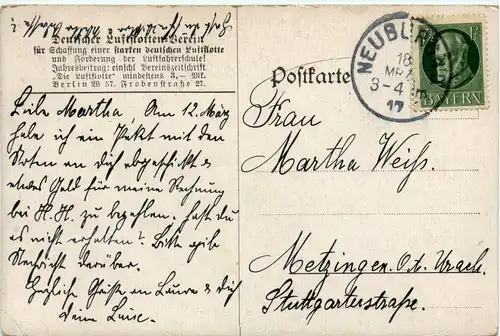 Deutscher Luftflotten-Verein
für Schaffung einer starken deutschen Luftflotte
und Förderung der Luftfahrerschule!
Jahresbeitrag: einschl. Vereinszeitschrift
„Die Luftflotte" mindestens 3,— Mk.
Berlin W 57. Frobenstraße 27.
Liebe Martha, Am 12. März
habe ich ein Paket mit den
Noten an dich abgeschickt &
etwas Geld für meine Rechnung
bei H. H. zu bezahlen. hast du
es nicht erhalten? Bitte gib
Nachricht darüber.
Herzliche Grüße an Laura & dich
Deine Luise.
Postkarte
NEUBUR
18
MRZ
3-4
17
BAYERN
Frau
Martha Weiß.
Metzingen O.A. Urach.
Stuttgarterstraße.